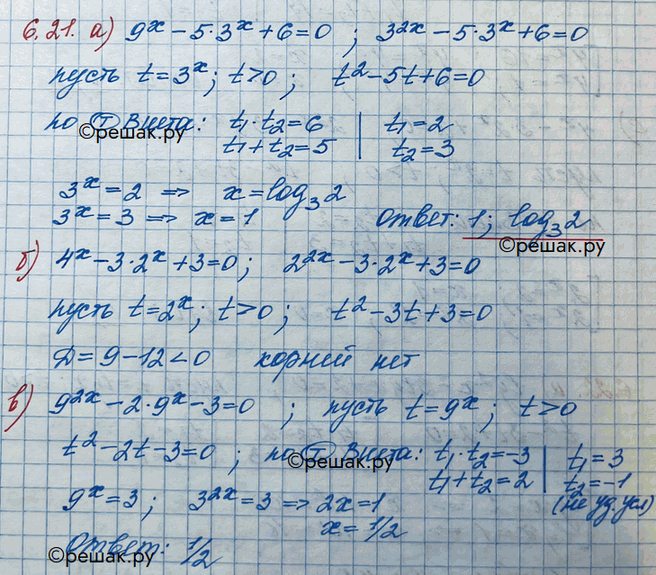 6.21. а) 9ˣ − 5·3ˣ + 6 = 0 ; 3²ˣ − 5·3ˣ + 6 = 0
пусть t = 3ˣ; t > 0 ; t² − 5t + 6 = 0
по Т Виета: t₁·t₂ = 6 | t₁ = 2
t₁ + t₂ = 5 | t₂ = 3
©решак.ру
3ˣ = 2 ⇒ x = log₃2
3ˣ = 3 ⇒ x = 1 Ответ: 1; log₃2
©решак.ру
б) 4ˣ − 3·2ˣ + 3 = 0; 2²ˣ − 3·2ˣ + 3 = 0
пусть t = 2ˣ; t > 0 ; t² − 3t + 3 = 0
Д = 9 − 12 < 0 корней нет
в) 9²ˣ − 2·9ˣ − 3 = 0 ; пусть t = 9ˣ; t > 0
t² − 2t − 3 = 0 ; по Т Виета: t₁·t₂ = −3 | t₁ = 3
©решак.ру
t₁ + t₂ = 2 | t₂ = −1
(не уд. усл)
9ˣ = 3; 3²ˣ = 3 ⇒ 2x = 1
x = 1/2
Ответ: 1/2
©решак.ру